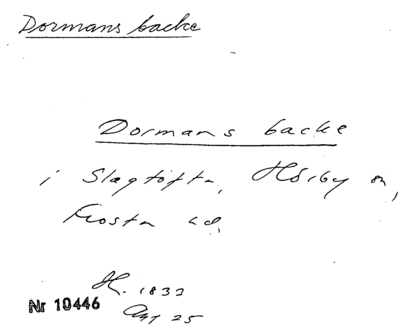 Dormans backe
Dormans backe
i Slagtofta, Hörby sn,
Frosta hd.
H. 1833
Nr 10446
25